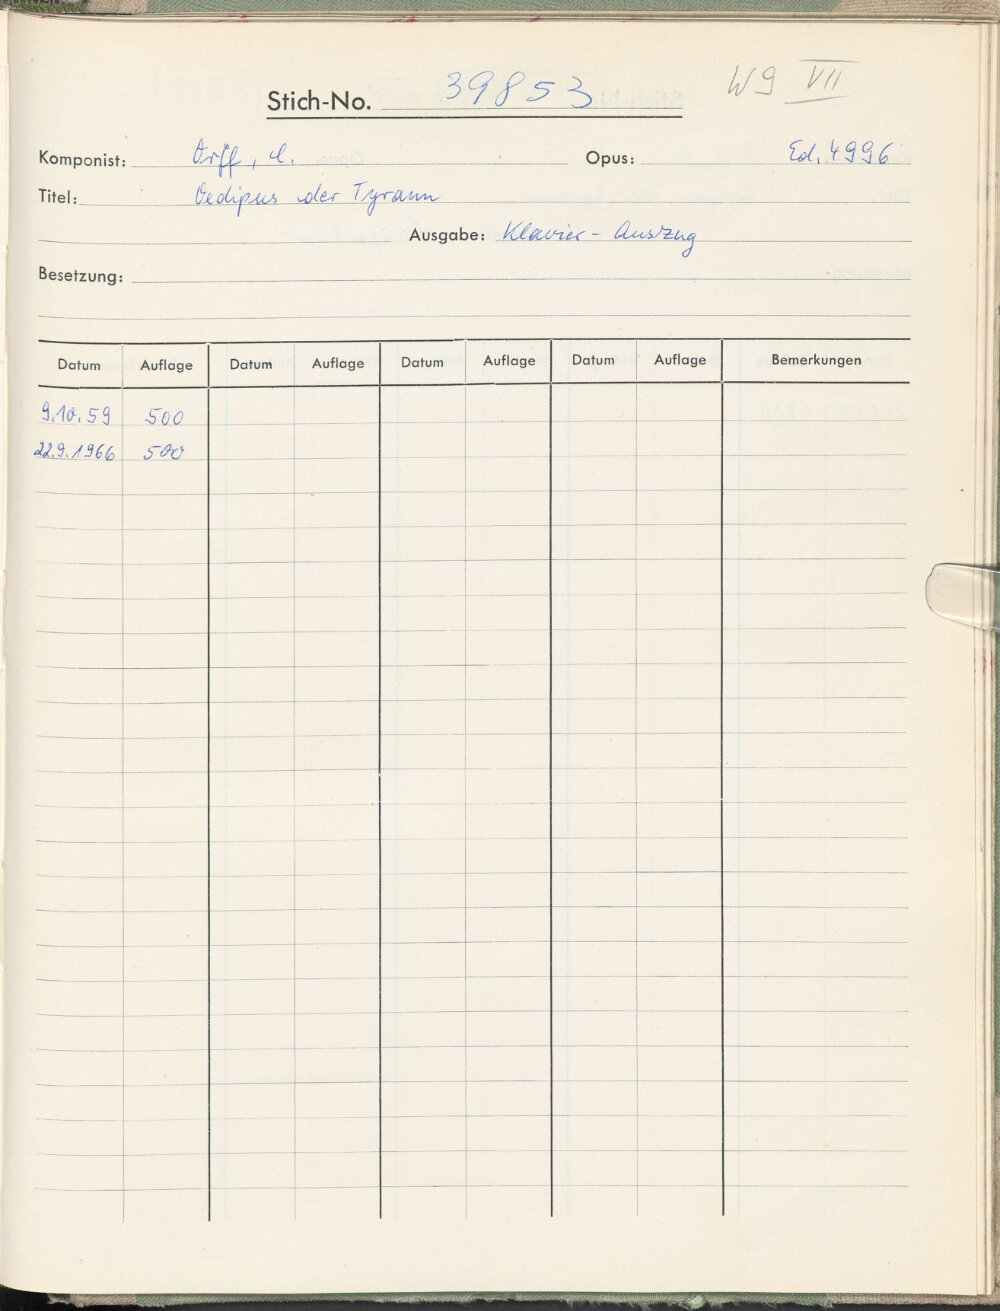 Stich-No. 39853 W9 VII
Komponist: Orff, C. Opus: Ed. 4996
Titel: Oedipus der Tyrann
Ausgabe: Klavier-Auszug
Besetzung:
Datum Auflage Datum Auflage Datum Auflage Datum Auflage Bemerkungen
9.10.59 500
22.9.1966 500